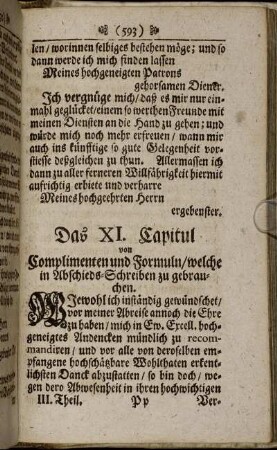 (593)
len/ worinnen selbiges bestehen möge; und so
dann werde ich mich finden lassen
Meines hochgeneigten Patrons
gehorsamen Diener.
Ich vergnüge mich/ daß es mir nur ein-
mahl geglücket/ einem so werthen Freunde mit
meinen Diensten an die Hand zu gehen; und
würde mich noch mehr erfreuen/ wann mir
auch ins künfftige so gute Gelegenheit vor-
stiesse deßgleichen zu thun. Allermassen ich
dann zu aller ferneren Willfährigkeit hiermit
aufrichtig erbiete und verharre
Meines hochgeehrten Herrn
ergebenster.
Das XI. Capitul
von
Complimenten und Formuln/ welche
in Abschieds-Schreiben zu gebrau-
chen.
WIewohl ich inständig gewündschet/
vor meiner Abreise annoch die Ehre
zu haben/ mich in Ew. Excell. hoch-
geneigtes Andencken mündlich zu recom-
mandiren/ und vor alle von deroselben em-
pfangene hochschätzbare Wohlthaten erkent-
lichsten Danck abzustatten/ so bin doch/ we-
gen dero Abwesenheit in ihren hochwichtigen
III. Theil. Pp Ver-